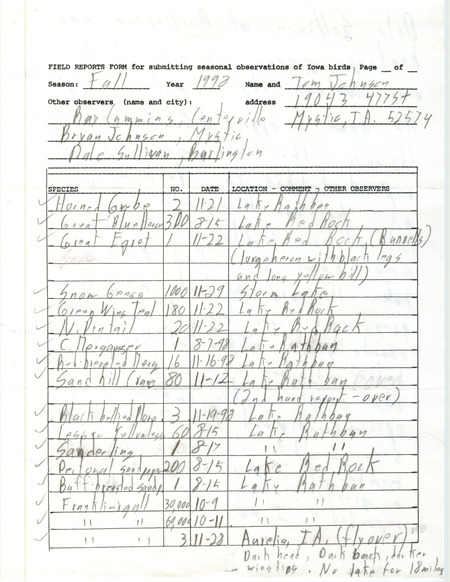 FIELD REPORTS FORM for submitting seasonal observations of Iowa birds Page __ of __
Season: Fall Year 1998 Name and Tom Johnson
Other observers (name and city): address 19043 477St
Ray Cummins, Centerville Mystic, IA. 52574
Bryan Johnson, Mystic
Dale Sullivan, Burlington
SPECIES NO. DATE LOCATION - COMMENT - OTHER OBSERVERS
Horned Grebe 2 11-21 Lake Rathbun
Great Blue Heron 300 8-15 Lake Red Rock
Great Egret 1 11-22 Lake Red Rock (Runnells)
(large heron with black legs
and long yellow bill)
Snow Geese 1000 11-29 Storm Lake
Green Wing Teal 180 11-22 Lake Red Rock
N. Pintail 20 11-22 Lake Red Rock
C. Merganser 1 8-7-98 Lake Rathbun
Red-breasted Merg 16 11-16-98 Lake Rathbun
Sand hill Crane 80 11-12 Lake Rathbun
(2nd hand report - over)
Black bellied Plover 3 11-19-98 Lake Rathbun
Lesser Yellowlegs 60 8-15 Lake Rathbun
Sanderling 1 8-17 " "
Pectoral Sandpiper 200 8-15 Lake Red Rock
Buff-breasted Sandp 1 8-15 Lake Rathbun
Franklins gull 30,000 10-9 " "
" " 60,000 10-11 " "
" " 3 11-28 Aurelia, IA. (fly over)
Dark head, Dark back, darker
wing tips. No lake for 18 miles